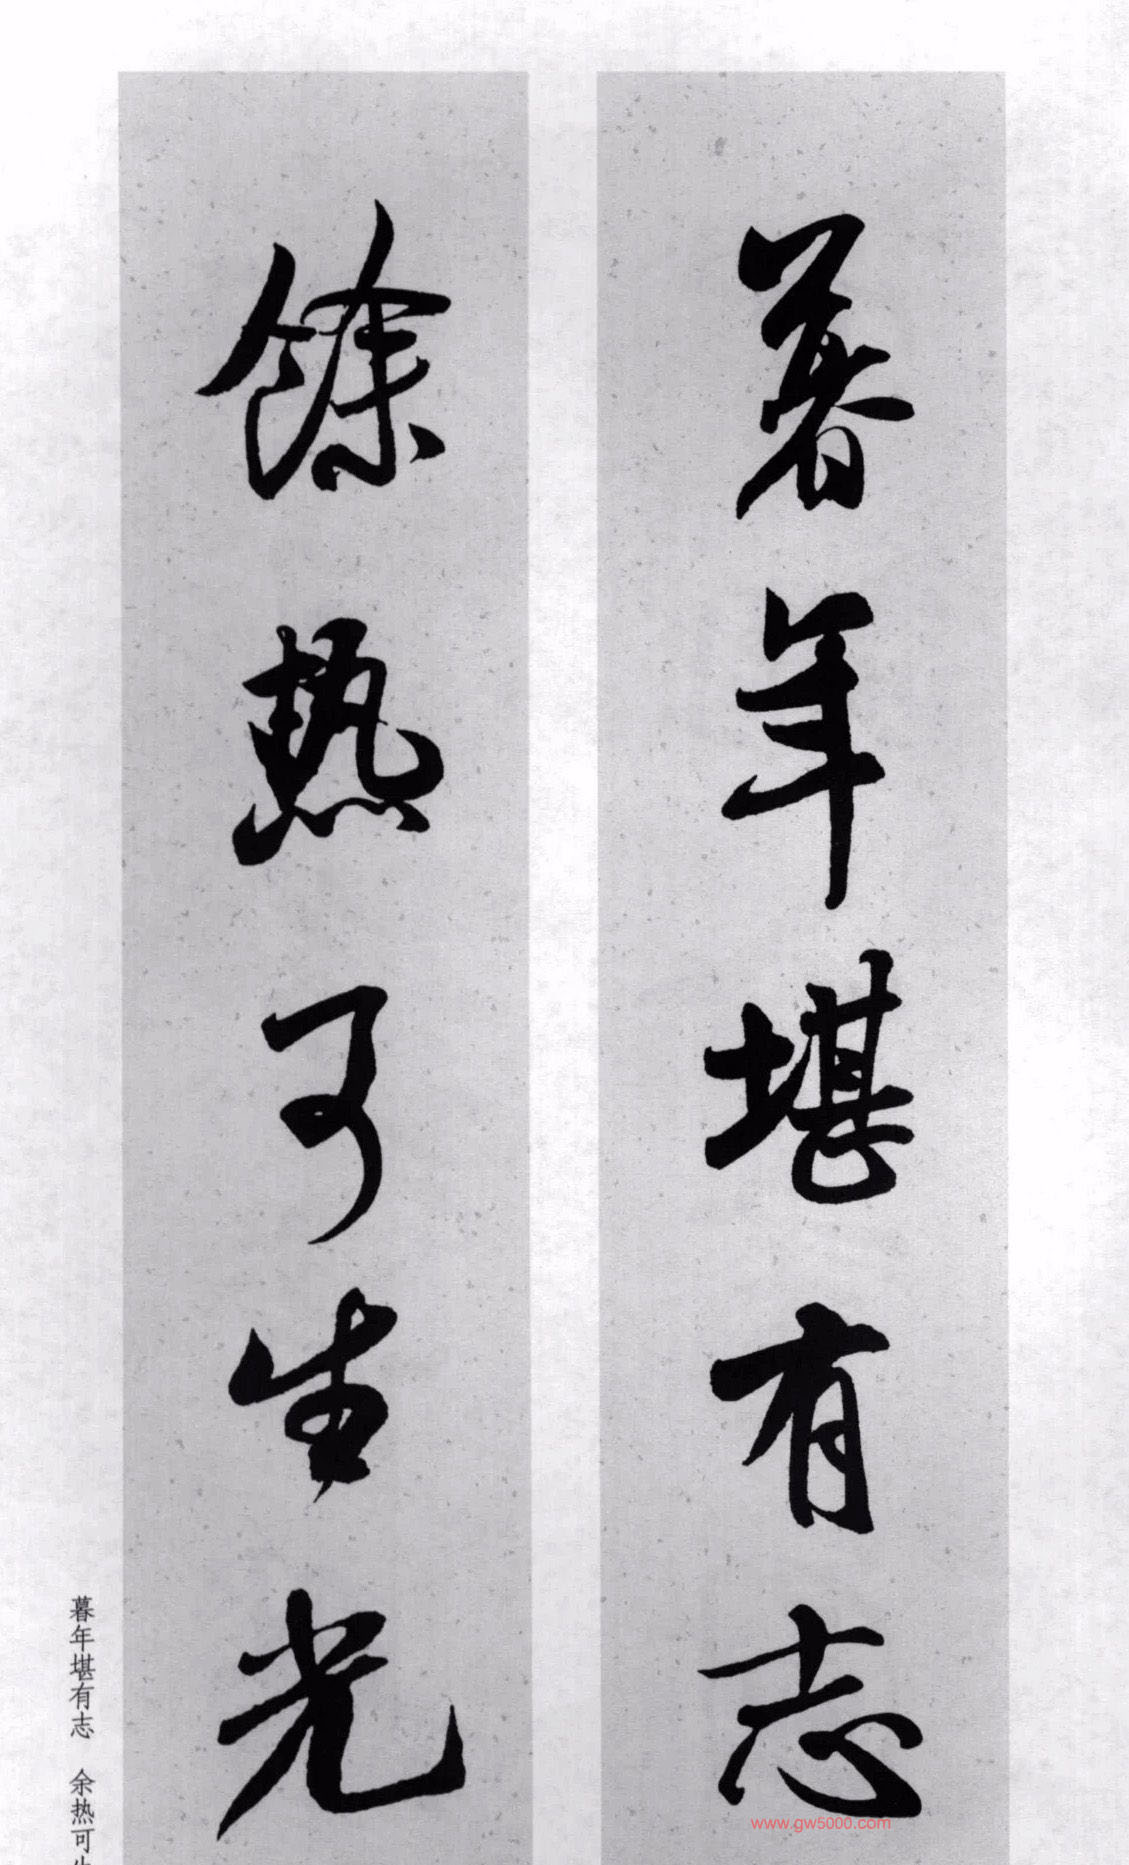 暮年堪有志
餘热可生光
暮年堪有志 余热可
www.gw5000.com